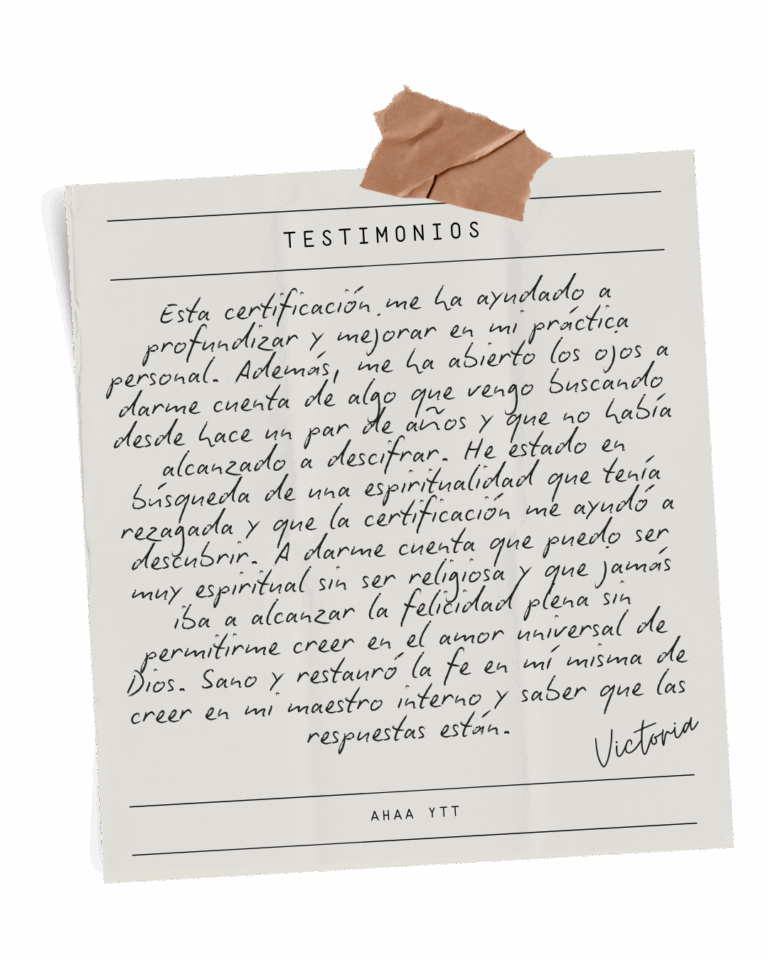 TESTIMONIOS
Esta certificación me ha ayudado a
profundizar y mejorar en mi práctica
personal. Además, me ha abierto los ojos a
darme cuenta de algo que vengo buscando
desde hace un par de años y que no había
alcanzado a descifrar. He estado en
búsqueda de una espiritualidad que tenía
rezagada y que la certificación me ayudó a
descubrir. A darme cuenta que puedo ser
muy espiritual sin ser religiosa y que jamás
iba a alcanzar la felicidad plena sin
permitirme creer en el amor universal de
Dios. Sano y restauró la fe en mí misma de
creer en mi maestro interno y saber que las
respuestas están.
Victoria
AHAA YTT